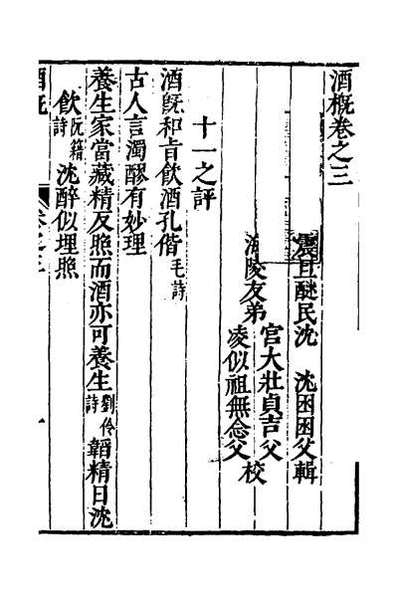 酒概卷之三
震旦醚民沈　沈困困父輯
海陵友弟
宮大壯貞吉父
凌似祖無念父
校
十一之評
酒旣和旨飲酒孔偕毛詩
古人言濁醪有妙理
養生家當藏精反照而酒亦可養生劉伶詩韜精日沈
飲阮籍詩沈醉似埋照
酒概
卷之三
一